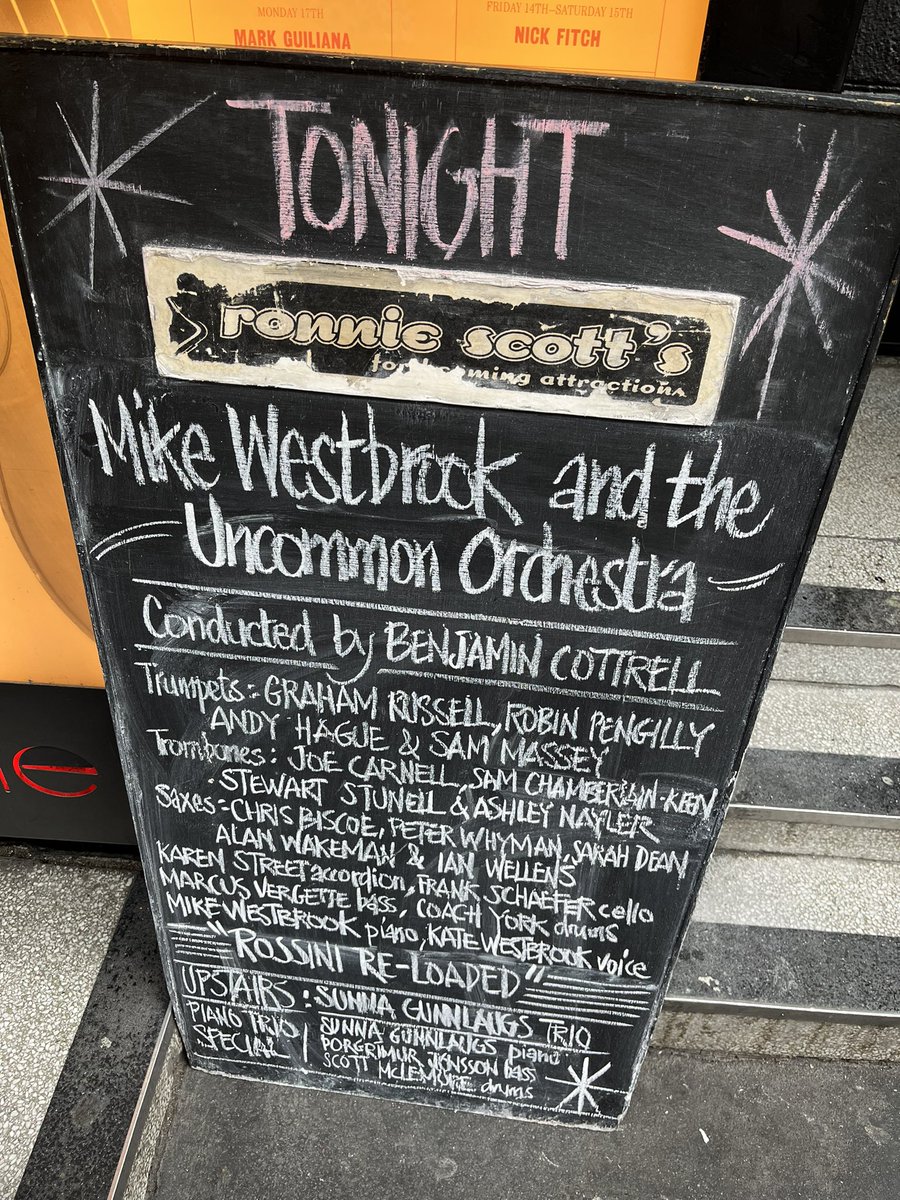 MONDAY 17TH
MARK GUILIANA
FRIDAY 14TH–SATURDAY 15TH
NICK FITCH
TONIGHT
ronnie scott's
forthcoming attractions
Mike Westbrook and the
Uncommon Orchestra
Conducted by BENJAMIN COTTRELL
Trumpets: GRAHAM RUSSELL, ROBIN PENGILLY
ANDY HAGUE & SAM MASSEY
Trombones: JOE CARNELL, SAM CHAMBERLAIN-KEEN
STEWART STUNELL & ASHLEY NAYLER
Saxes: CHRIS BISCOE, PETER WHYMAN, SARAH DEAN
ALAN WAKEMAN & IAN WELLENS
KAREN STREET accordion, FRANK SCHAEFER cello
MARCUS VERGETTE bass, COACH YORK drums
MIKE WESTBROOK piano, KATE WESTBROOK voice
"ROSSINI RE-LOADED"
UPSTAIRS: SUNNA GUNNLAUGS TRIO
PIANO TRIO
SPECIAL
SUNNA GUNNLAUGS piano
PORGRIMUR JONSSON bass
SCOTT McLEMORE drums